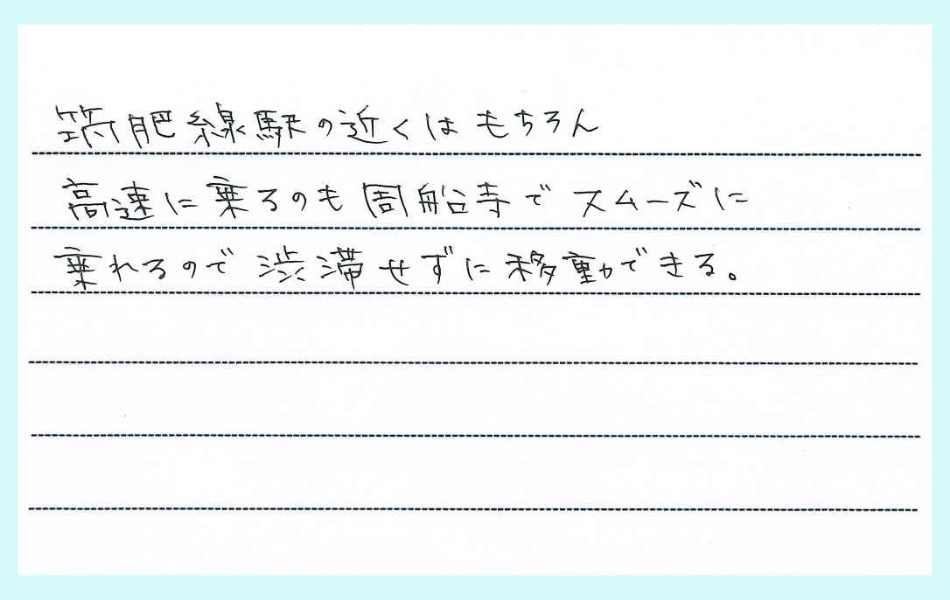 筑肥線駅の近くはもちろん
高速に乗るのも周船寺でスムーズに
乗れるので渋滞せずに移動できる。